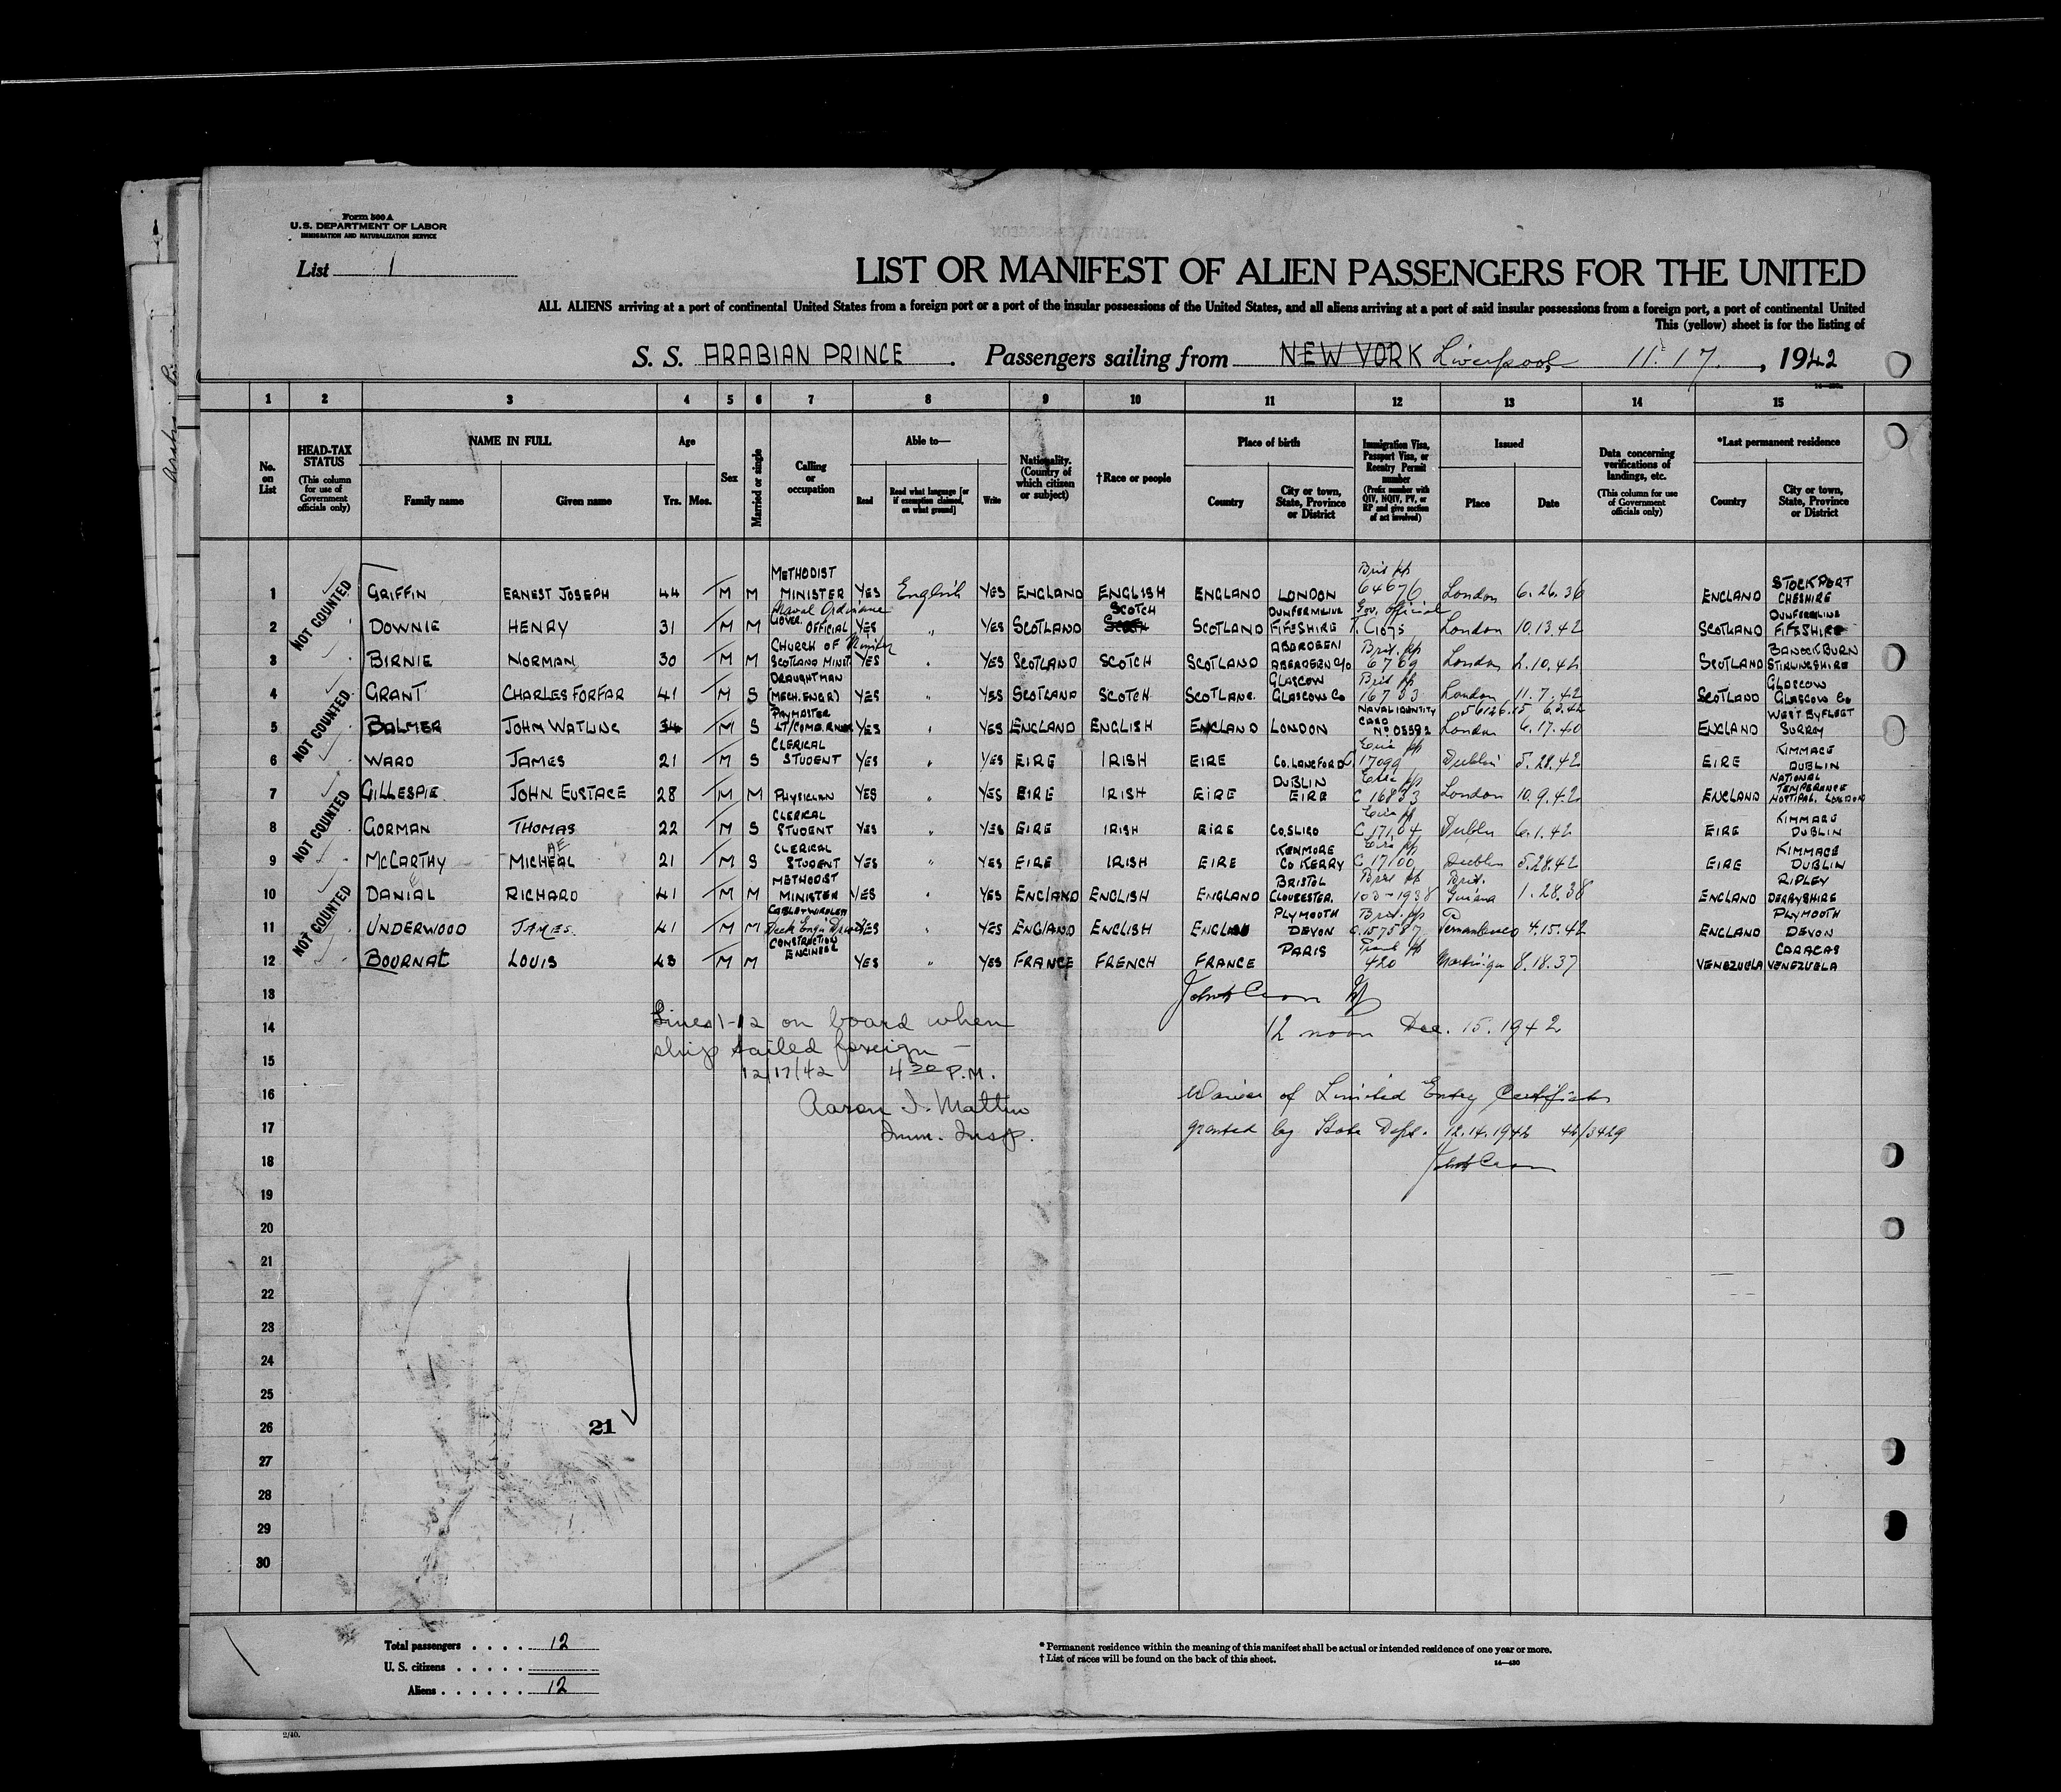 Form 500 A
U.S. DEPARTMENT OF LABOR
IMMIGRATION AND NATURALIZATION SERVICE
List 1
LIST OR MANIFEST OF ALIEN PASSENGERS FOR THE UNITED
ALL ALIENS arriving at a port of continental United States from a foreign port or a port of the insular possessions of the United States, and all aliens arriving at a port of said insular possessions from a foreign port, a port of continental United
This (yellow) sheet is for the listing of
S. S. ARABIAN PRINCE. Passengers sailing from NEW YORK Liverpool 11.17., 1942
1 2 3 4 5 6 7 8 9 10 11 12 13 14 15
No. on List
HEAD-TAX STATUS (This column for use of Government officials only)
NAME IN FULL Family name Given name
Age Yrs. Mos.
Sex
Married or single
Calling or occupation
Able to— Read Read what language [or if exemption claimed, on what ground] Write
Nationality. (Country of which citizen or subject)
†Race or people
Place of birth Country City or town, State, Province or District
Immigration Visa, Passport Visa, or Reentry Permit number (Prefix number with QIV, NQIV, PV, or RP and give section of act involved)
Issued Place Date
Data concerning verifications of landings, etc. (This column for use of Government officials only)
*Last permanent residence Country City or town, State, Province or District
NOT COUNTED
1 GRIFFIN ERNEST JOSEPH 44 M M METHODIST MINISTER YES English YES ENGLAND ENGLISH ENGLAND LONDON Brit pp 64676 London 6.26.36 ENGLAND STOCKPORT CHESHIRE
2 DOWNIE HENRY 31 M M Naval Ordinance GOVER. OFFICIAL YES " YES SCOTLAND SCOTCH SCOTLAND DUNFERMLINE FIFESHIRE Gov. Official T.C1075 London 10.13.42 SCOTLAND DUNFERMLINE FIFESHIRE
3 BIRNIE NORMAN 30 M M CHURCH OF SCOTLAND MINIT. Minister YES " YES SCOTLAND SCOTCH SCOTLAND ABERDEEN ABERDEEN C/O Brit. pp 6769 London 2.10.42 SCOTLAND BANOCKBURN STIRLINGSHIRE
NOT COUNTED
4 GRANT CHARLES FORFAR 41 M S DRAUGHTMAN (MECH. ENGR) YES " YES SCOTLAND SCOTCH SCOTLAND. GLASGOW GLASGOW CO Brit pp 16733 London 11.7.42 SCOTLAND GLASGOW GLASGOW CO
5 BALMER JOHN WATLING 34 M S PAYMASTER LT/COMB. RNVR YES " YES ENGLAND ENGLISH ENGLAND LONDON NAVAL IDENTITY CARD No 03592 London 6.17.40 ENGLAND WEST BYFLEET SURRY
6 WARD JAMES 21 M S CLERICAL STUDENT YES " YES EIRE IRISH EIRE CO. LANGFORD Eire pp C 17099 Dublin 5.28.42 EIRE KIMMAGE DUBLIN
NOT COUNTED
7 GILLESPIE JOHN EUSTACE 28 M M PHYSICIAN YES " YES EIRE IRISH EIRE DUBLIN EIRE Eire pp C 16833 London 10.9.42 ENGLAND NATIONAL TEMPERANCE HOTTIPAL. LONDON
8 GORMAN THOMAS 22 M S CLERICAL STUDENT YES " YES EIRE IRISH EIRE CO. SLIGO Eire pp C 17104 Dublin 6.1.42 EIRE KIMMAGE DUBLIN
9 McCARTHY MICHEAL AE 21 M S CLERICAL STUDENT YES " YES EIRE IRISH EIRE KENMORE CO KERRY Eire pp C 17100 Dublin 5.28.42 EIRE KIMMAGE DUBLIN
NOT COUNTED
10 DANIAL RICHARD 41 M M METHODIST MINISTER YES " YES ENGLAND ENGLISH ENGLAND BRISTOL GLOUCESTER. Brit pp 103-1938 Brit. Guiana 1.28.38 ENGLAND RIPLEY DERBYSHIRE
11 UNDERWOOD JAMES 41 M M CABLE & WIRELESS YES " YES ENGLAND ENGLISH ENGLAND PLYMOUTH DEVON Brit. pp C.157587 Pernambuco 4.15.42 ENGLAND PLYMOUTH DEVON
12 BOURNAT LOUIS 43 M M CONSTRUCTION ENGINEER YES " YES FRANCE FRENCH FRANCE PARIS French pp 420 Martinique 8.18.37 VENEZUELA CARACAS VENEZUELA
13
14 Lines 1-12 on board when 12 noon Dec. 15. 1942
15 ship sailed foreign —
12/17/42 4 30 P.M.
16 Aaron I. Mattin Waiver of Limited Entry Certificate
17 Imm. Insp. granted by State Dept. 12.14.1942 44/3429
18
19
20
21
22
23
24
25
26
21
27
28
29
30
Total passengers . . . . 12
U. S. citizens . . . . .
Aliens . . . . . . 12
* Permanent residence within the meaning of this manifest shall be actual or intended residence of one year or more.
† List of races will be found on the back of this sheet.
14—430
2/40.